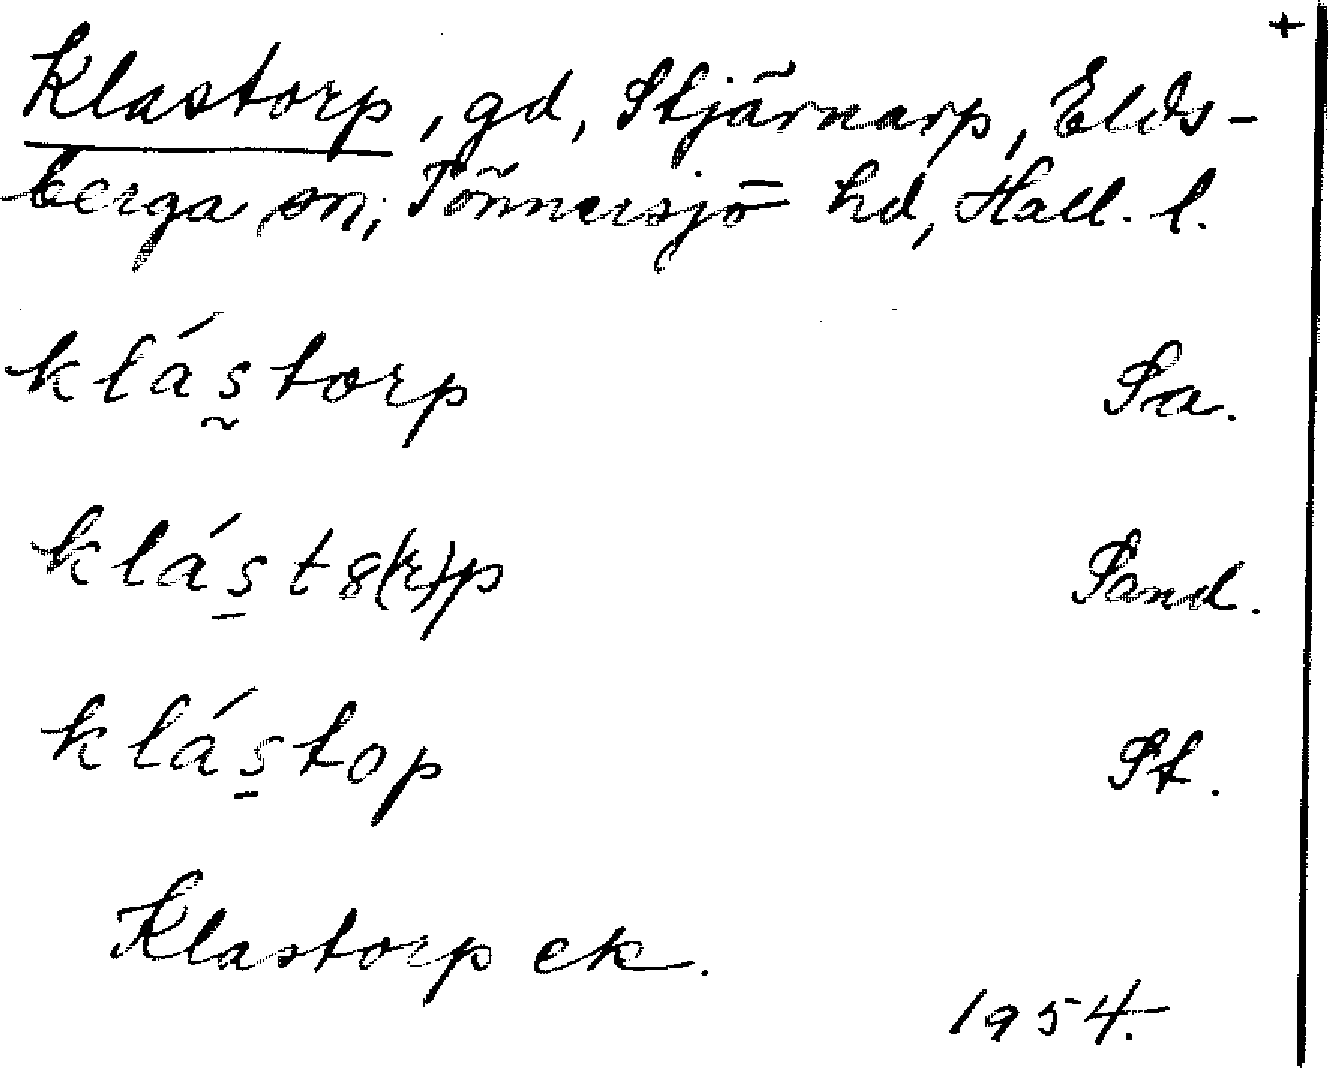 +
Klastorp, gd, Stjärnarp, Elds-
berga sn, Tönnersjö hd, Hall. l.
klás̰torp Sa.
klás̱t8(r)p Sand.
klás̱top St.
Klastorp ek.
1954.